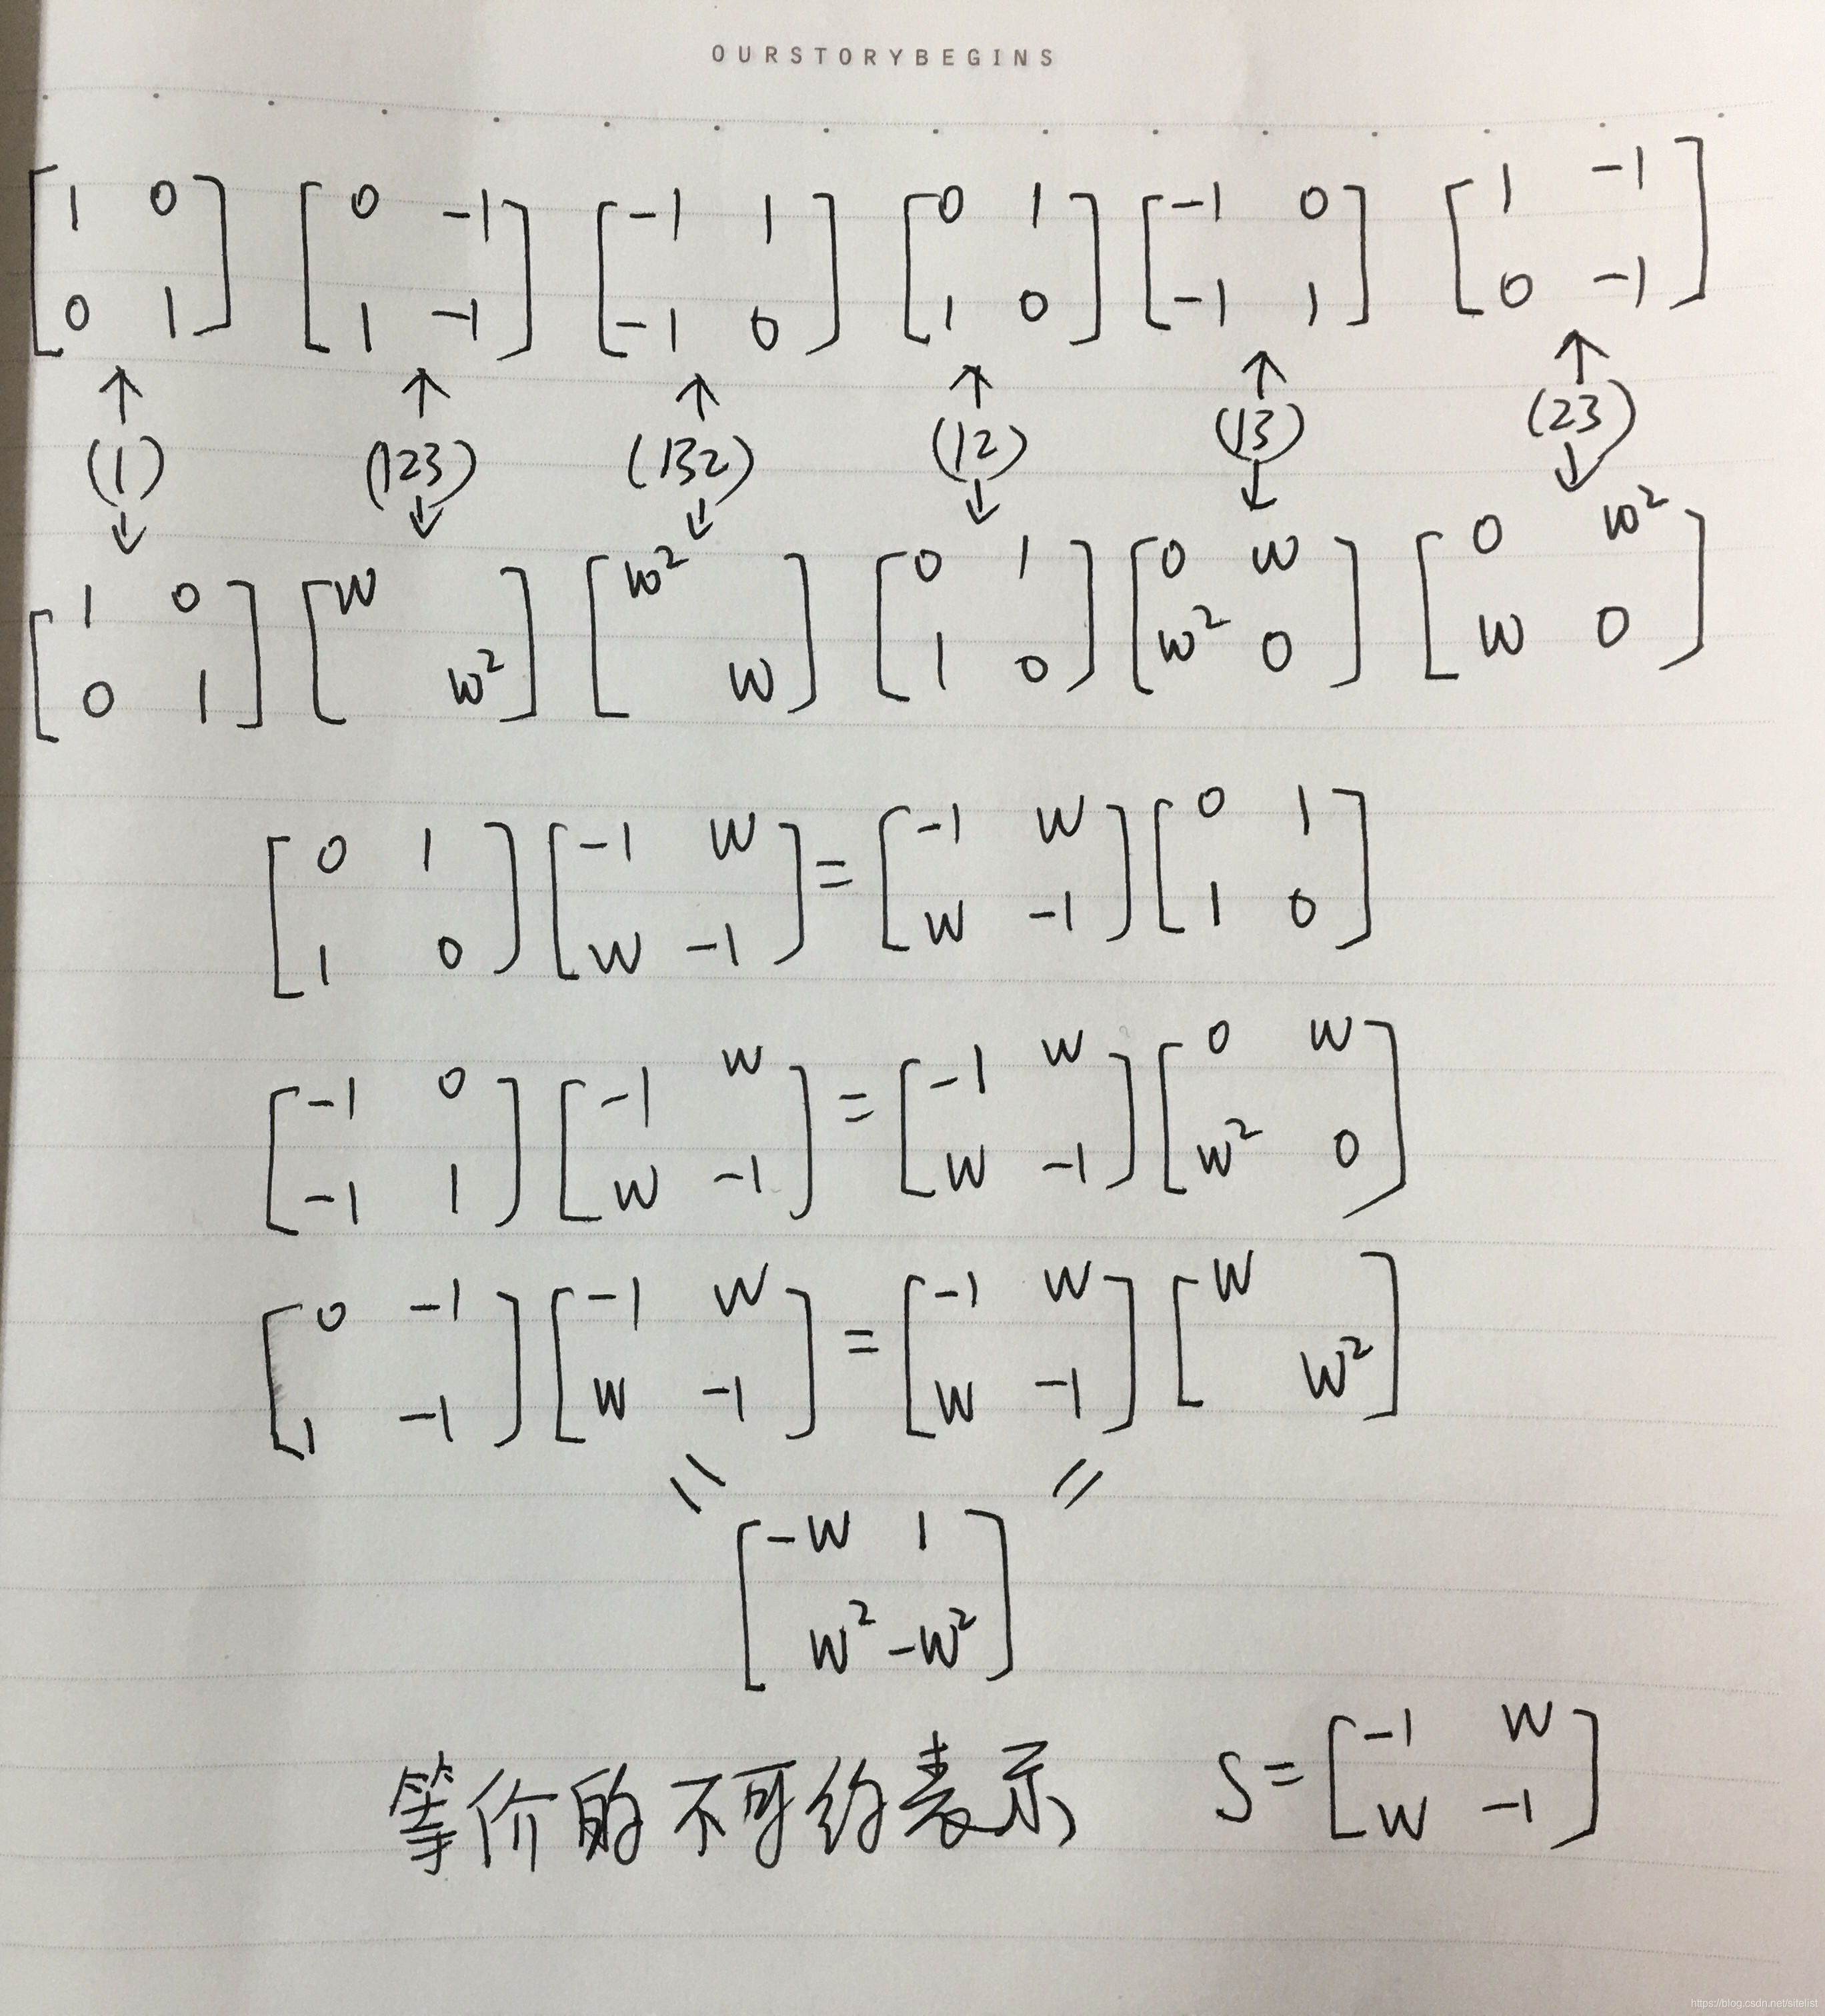 OURSTORYBEGINS
[1 0; 0 1] [0 -1; 1 -1] [-1 1; -1 0] [0 1; 1 0] [-1 0; -1 1] [1 -1; 0 -1]
↑ ↑ ↑ ↑ ↑ ↑
(1) (123) (132) (12) (13) (23)
↓ ↓ ↓ ↓ ↓ ↓
[1 0; 0 1] [w ; w²] [w² ; w] [0 1; 1 0] [0 w; w² 0] [0 w²; w 0]
[0 1; 1 0] [-1 w; w -1] = [-1 w; w -1] [0 1; 1 0]
[-1 0; -1 1] [-1 w; w -1] = [-1 w; w -1] [0 w; w² 0]
[0 -1; 1 -1] [-1 w; w -1] = [-1 w; w -1] [w ; w²]
\\ //
[-w 1; w² -w²]
等价的不可约表示 S = [-1 w; w -1]
https://blog.csdn.net/sitelist